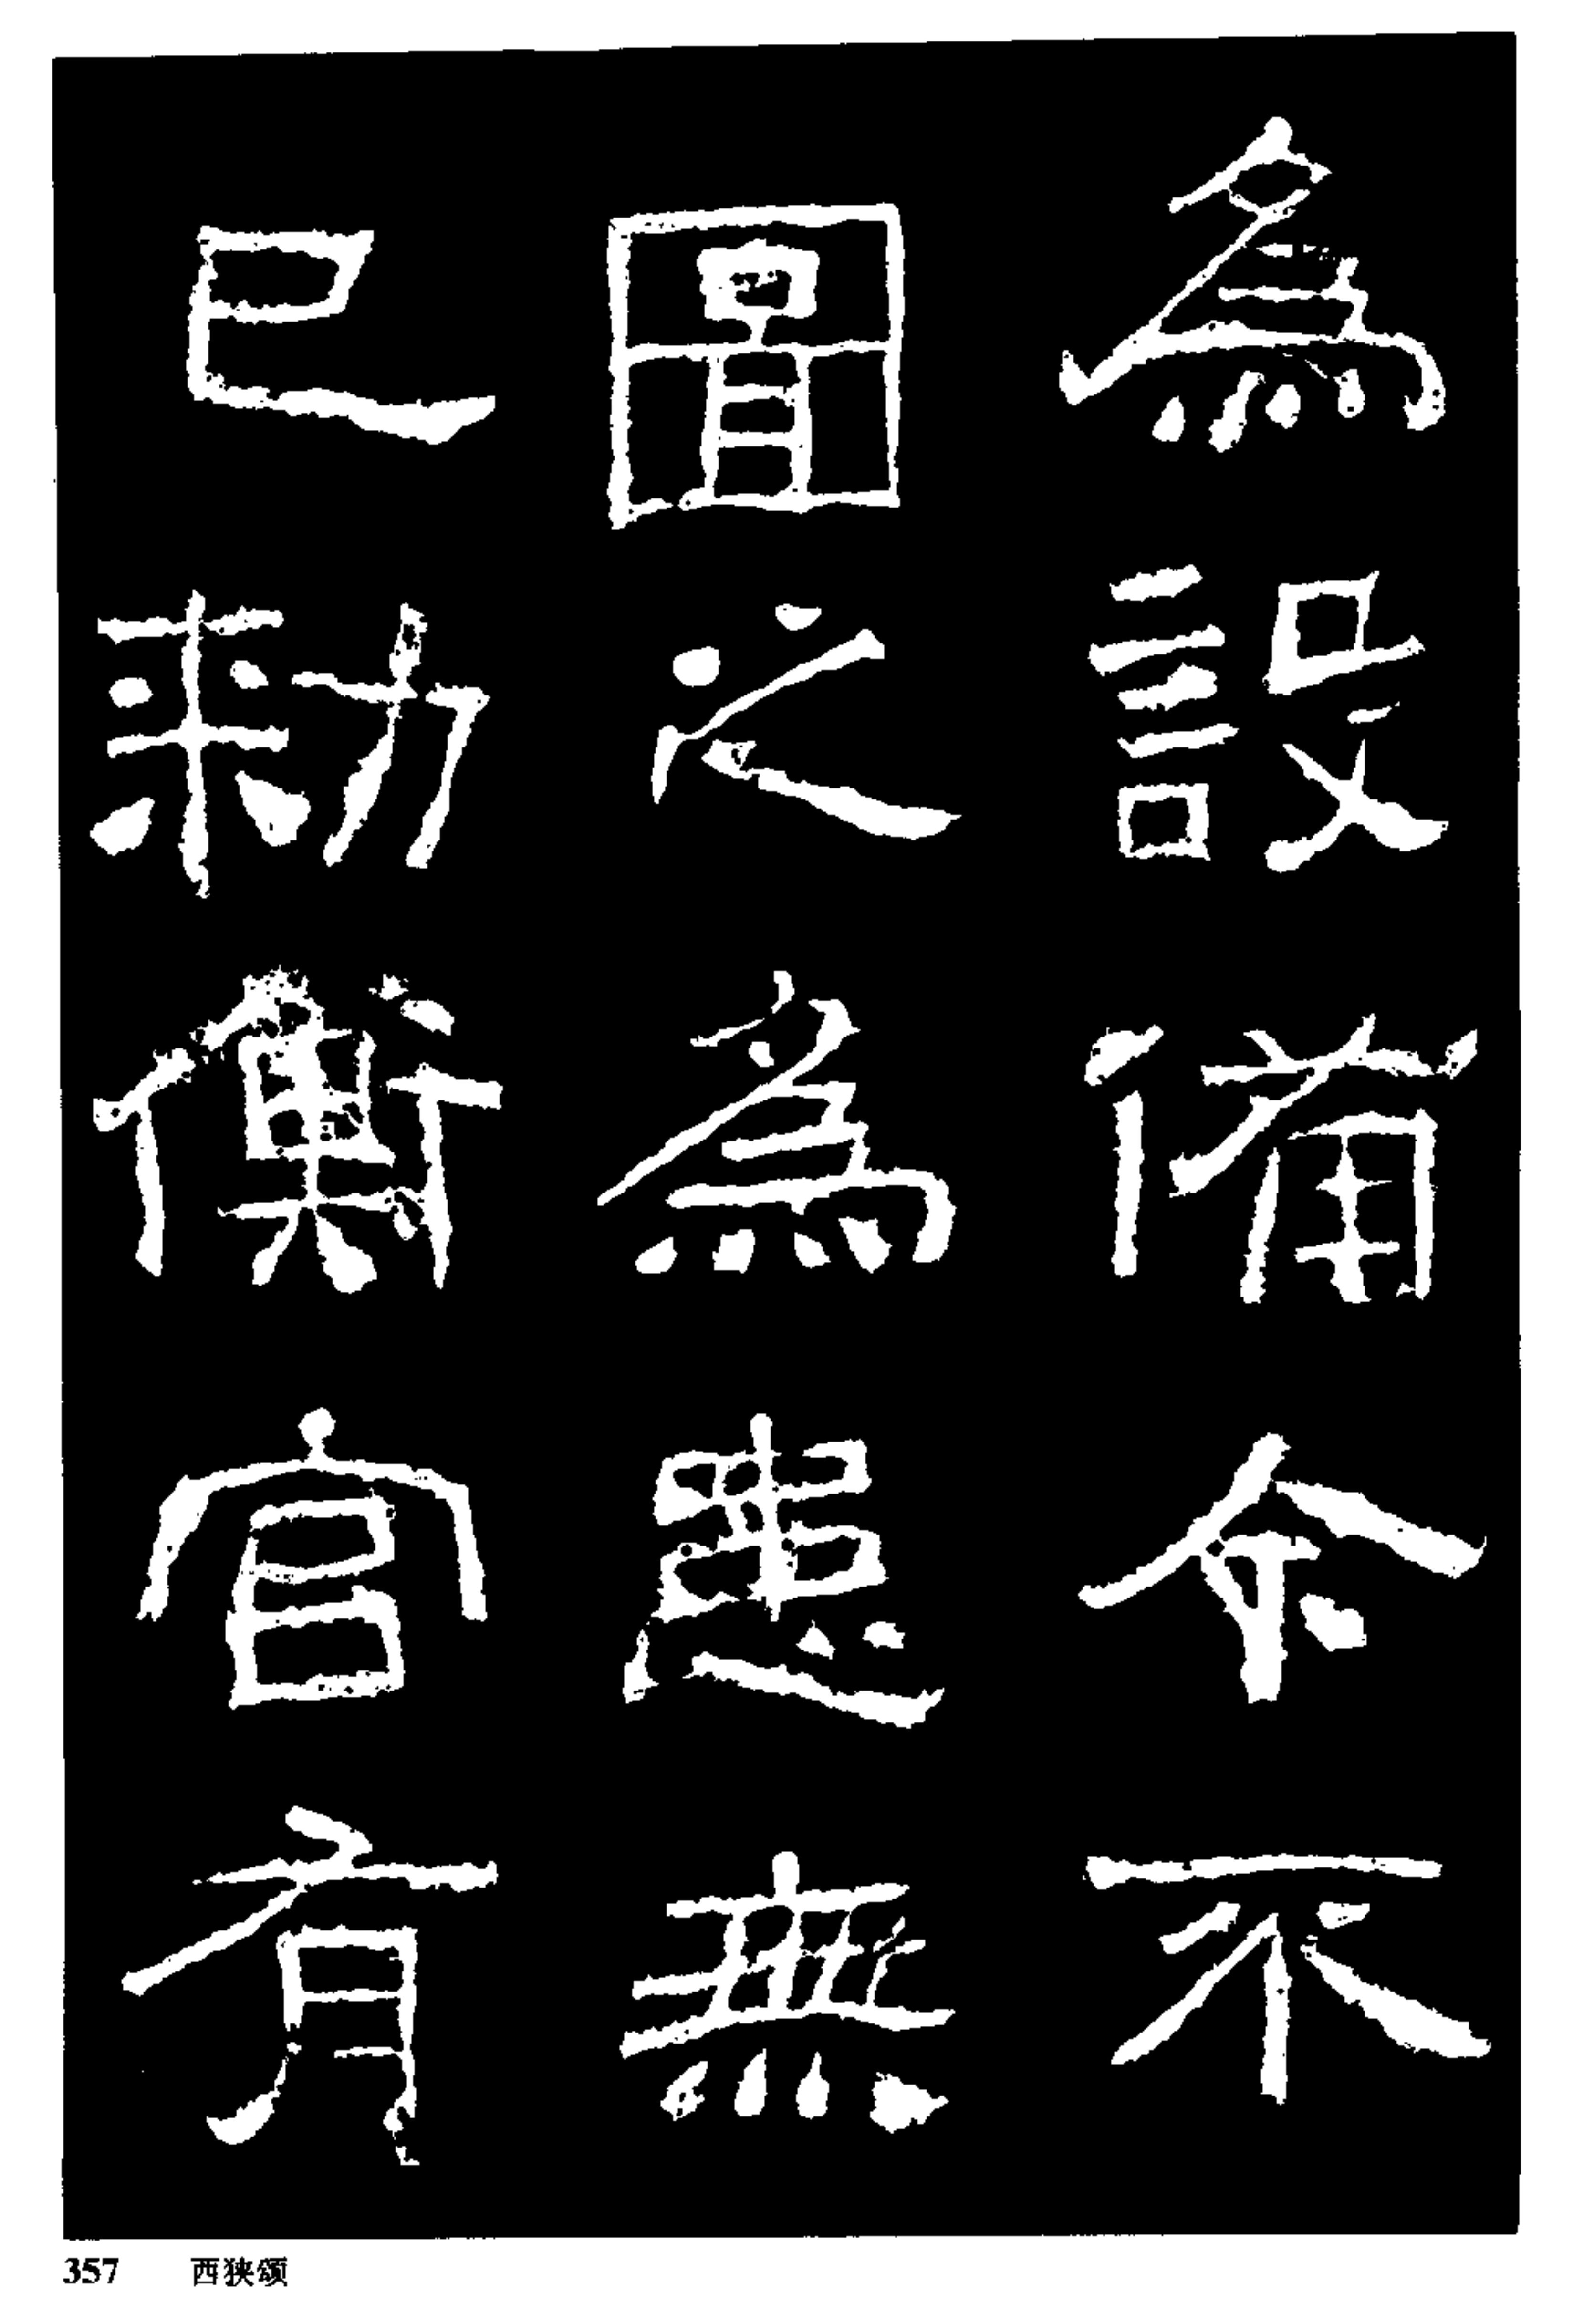 為設備今不
圖之為患無
已勑衡官有
357 西狭颂